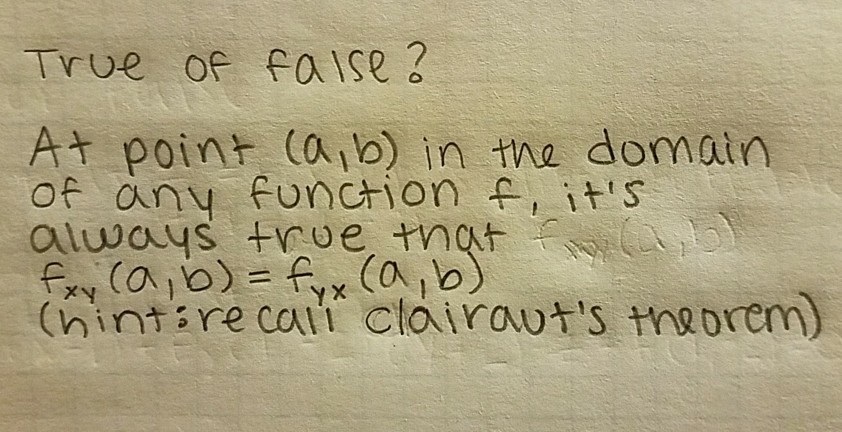 True of false?
At point (a,b) in the domain
of any function f, it's
always true that
fxy (a,b) = fyx (a,b)
(hint: recall clairaut's theorem)